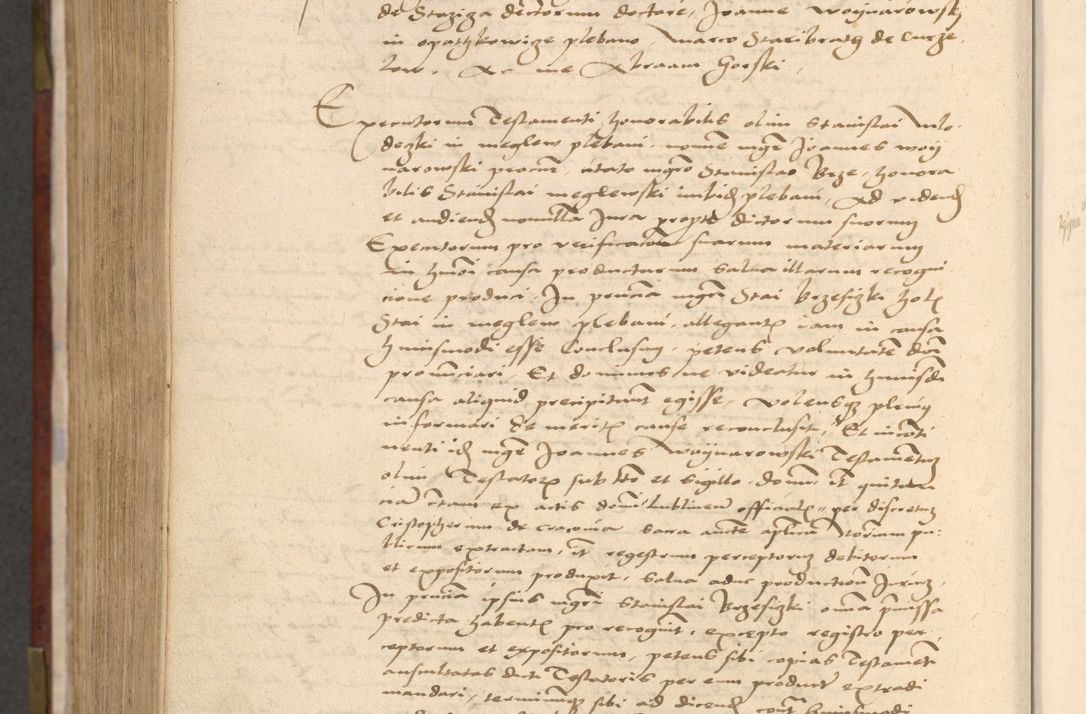 de Staziza doctorum doctore, Joanne Woynarowskj
in opathkowize plebano, Marco de Curze,
low. Ac me Abraam Gorski,
Executorum Testamenti honorabilis olim Stanislai Wlo,
dezki in meglew plebani, nomine mgr Joannes woy
narowski procur, citato mgro Stanislao Brze, honora
bilis Stanislai meglewski ibid plebani, Ad vidend
et audiend nonnulla Jura propte dictorum suorum
Executorum pro verificatione suarum materiarum
in hmoi causa productarum salva illarum recogni
cione produci, In pntia mgri Stai Brzesizki
Stai in meglew plebani, allegantis iam in causa
huiusmodi esse Conclusum, petens voluntate dm
pronunciari, Et dominus ne videatur in huiusdi
causa aliquid precipitant egisse, volensq plenius
informari de meritis cause reconclusit, Et incoti
nenti id mgr Joannes Woynarowski Testamentum
olim Testatoris sub tto et sigillo, domini,
ex actis domini Lublinen officialis per discretum
Cristopherum de cracovia sacra aucte aplica Notarium pu:
blicum extractam, it regestrum perceptorum debitorum
et expositorum produxit, salva aduc productione Jurium,
In pntia ipsius mgri Stanislai Brzesizki omia pmissa
predicta habentis pro recognit, excepto registro per,
ceptorum et expositorum, petens sibi copias Testamenti
ausultatas dicti Testatoris per eum producti extradi
mandari, terminumq sibi ad dicend cont huiusmodi